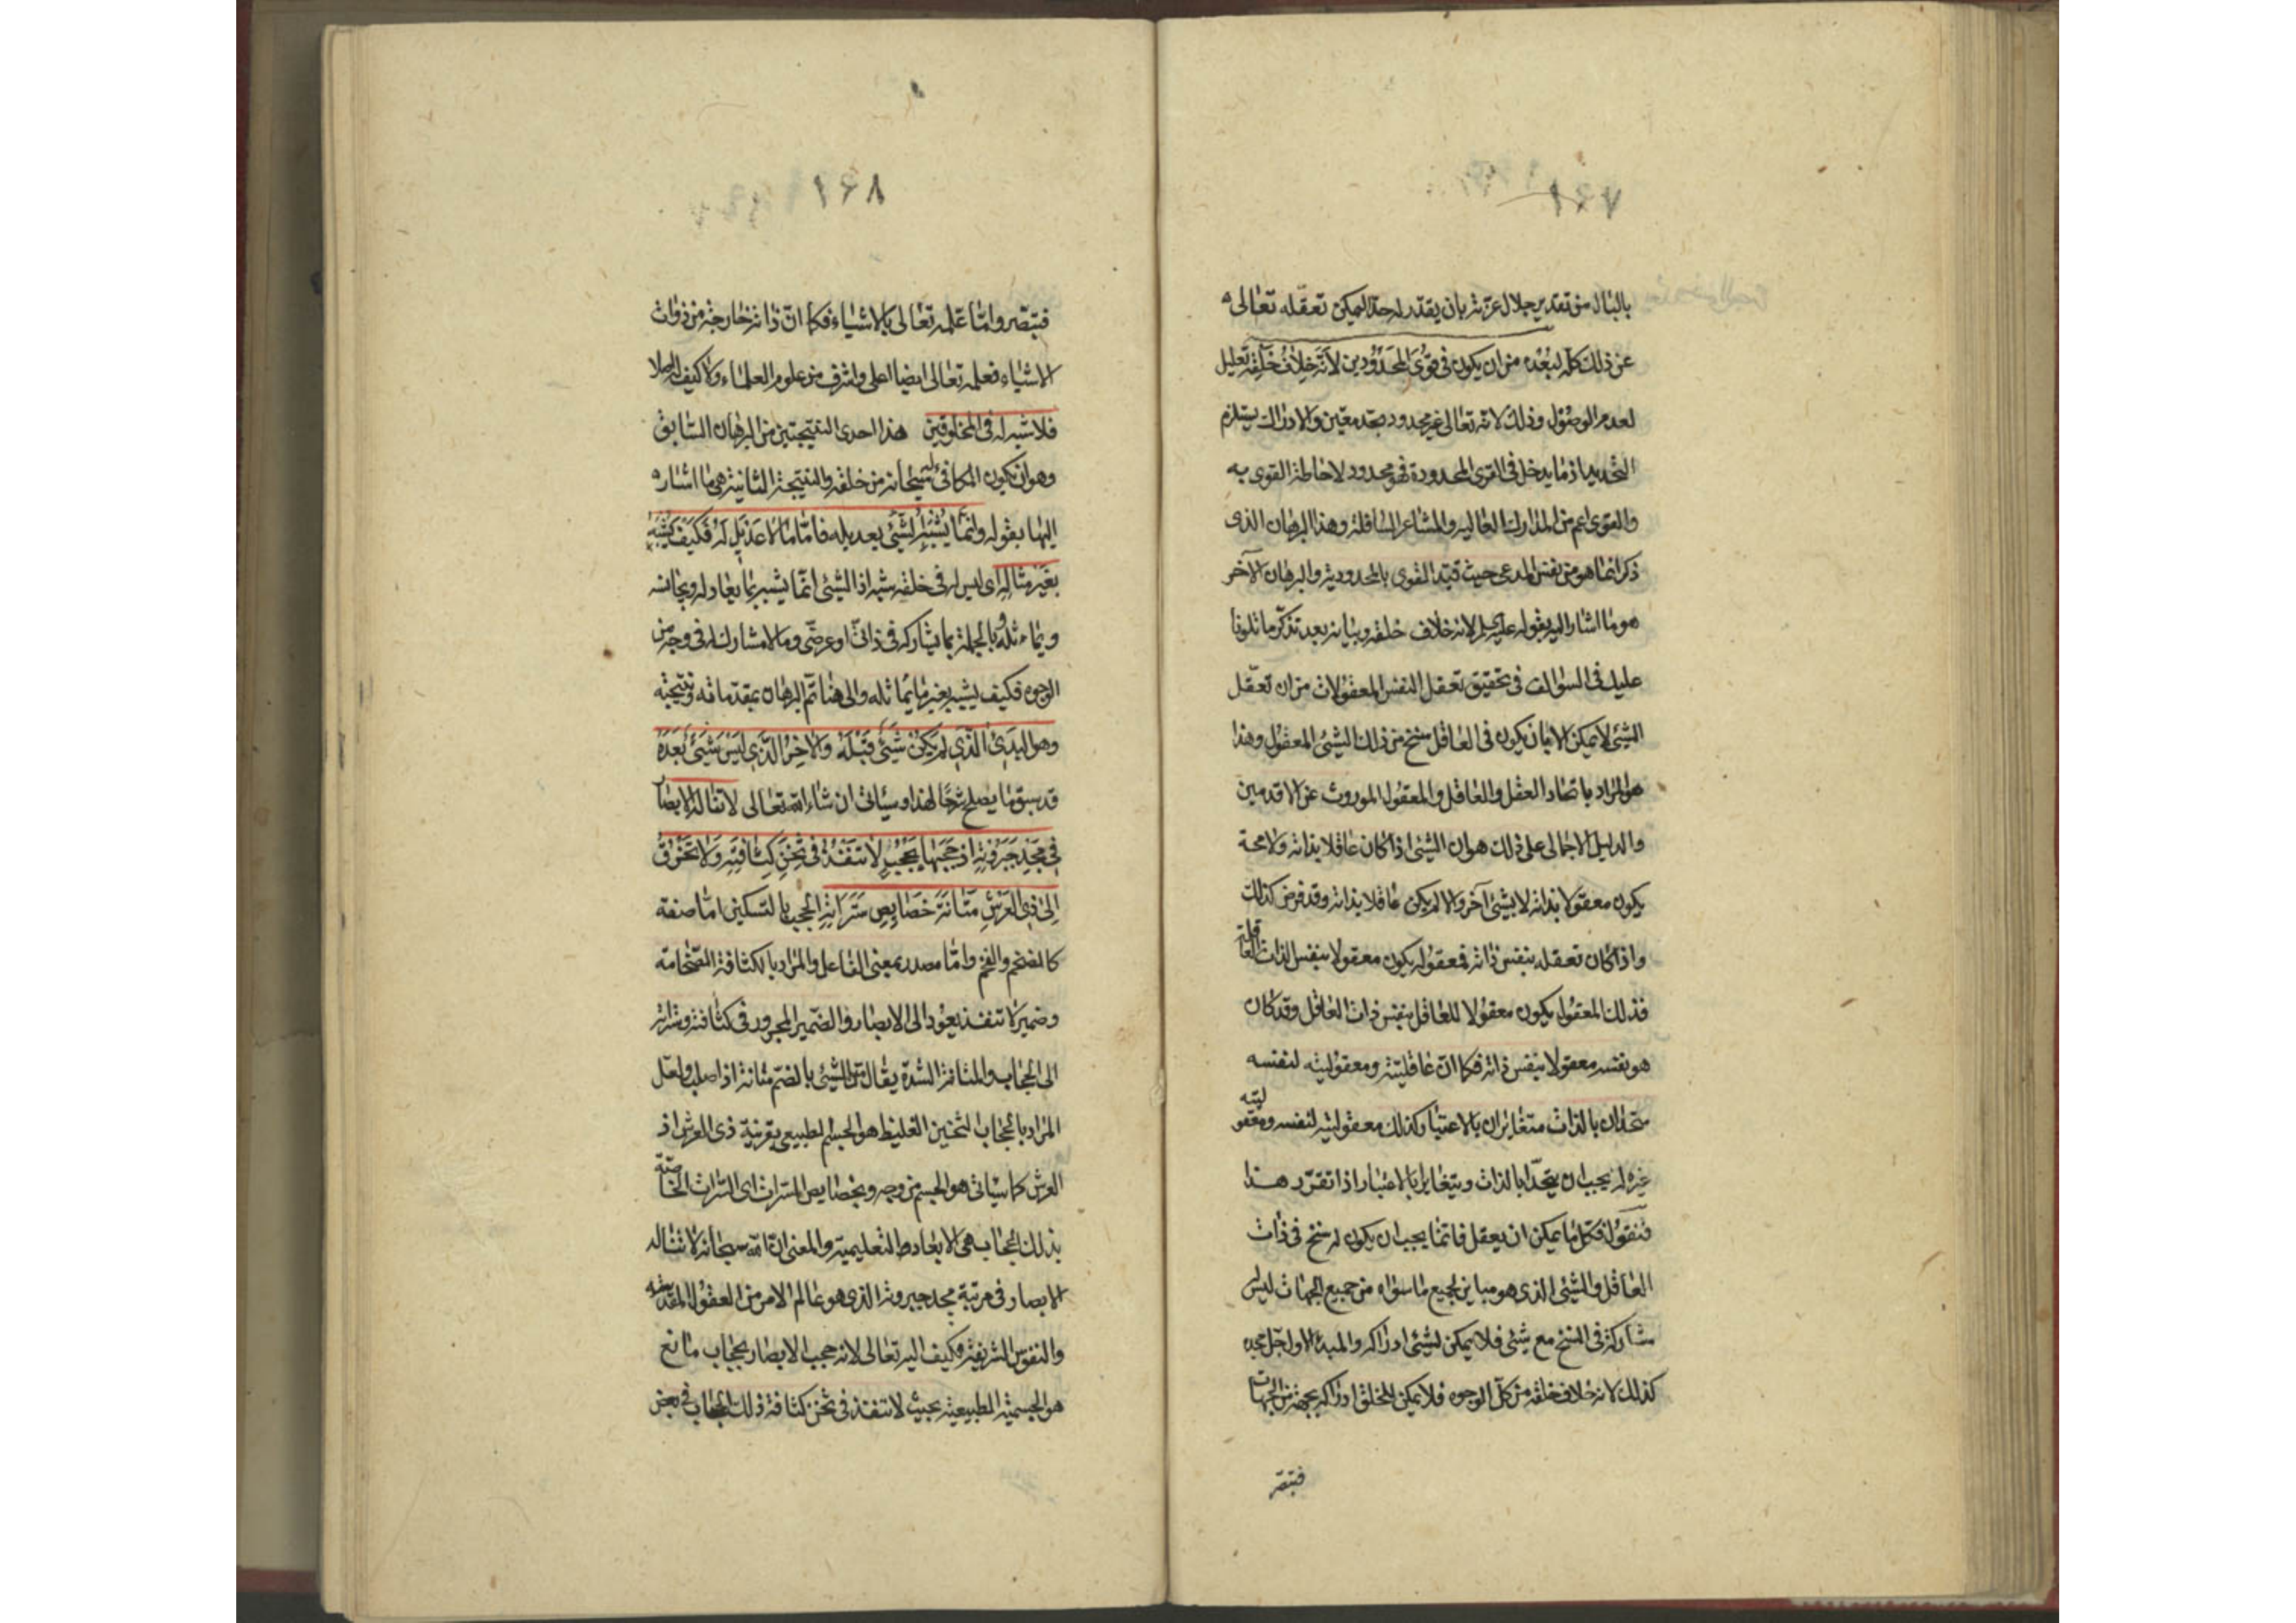 ١٦٧
بالبال من تقدير جلال عزته بان يقدر له حدا ليمكن تعقله تعالى
عن ذلك كله لبُعْده من ان يكون فى قُوَى المَحْدُودين لأنّه خِلافُ خَلْقِه تعليل
لعدم الوصول وذلك لانه تعالى غير محدود بحد معين والادراك يستلزم
التحديد اذ ما يدخل فى القوى المحدودة فهو محدود لاحاطة القوى به
والقوى اعم من المدارك العاليه والمشاعر السافلة وهذا البرهان الذى
ذكر انما هو من نفس المدعى حيث قيّد القوى بالمحدودية والبرهان الآخر
هو ما اشار اليه بقوله لانه خلاف خلقه وبيانه بعد تذكّر ما تلونا
عليك فى السوالف فى تحقيق تعقل النفس المعقولات من ان تعقل
الشئ لا يمكن الا بان يكون فى العاقل سنخ من ذلك الشئ المعقول وهذا
هو المراد باتحاد العقل والعاقل والمعقول الموروث عن الاقدمين
والدليل الاجمالى على ذلك هو ان الشئ اذا كان عاقلا بذاته ولا محة
يكون معقولا بذاته لا بشئ آخر والا لم يكن عاقلا بذاته وقد فرض كذلك
واذا كان تعقله بنفس ذاته فمعقوله يكون معقولا بنفس الذات العاقلة
فذلك المعقول يكون معقولا للعاقل بنفس ذات العاقل وقد كان
هو بنفسه معقولا بنفس ذاته فكما ان عاقليته ومعقوليته لنفسه
متحدان بالذات متغايران بالاعتبار وكذلك معقوليته لنفسه ومعقوليته
غيره له يجب ان يتحدا بالذات ويتغايرا بالاعتبار اذا تقرّر هذا
فنقول فكل ما يمكن ان يعقل فانما يجب ان يكون له سنخ فى ذات
العاقل والشئ الذى هو مباين لجميع ما سواه من جميع الجهات ليس
مشاركة فى السنخ مع شئ فلا يمكن لشئ ادراكه والمبدء الاول جل مجده
كذلك لانه خلاف خلقه من كل الوجوه فلا يمكن للخلق ادراكه بجهة من الجهات
فتبصّر
١٦٨
فتبصّر واما علمه تعالى بالاشياء فكما انّ ذاته خارجة من ذوات
الاشياء فعلمه تعالى ايضا اعلى واشرف من علوم العلماء ولا كيف له اصلا
فلا شبه له فى المخلوقين هذا احدى النتيجتين من البرهان السابق
وهو ان يكون المكافئ له سبحانه من خلقه والنتيجة الثانية هى ما اشار
اليها بقوله وانما يُشَبَّهُ الشَّئُ بعديله فامّا ما لا عَديلَ له فَكَيْفَ يُشَبَّهُ
بغَير مثاله اى ليس له فى خلقه شبه اذ الشئ انّما يشبه بما يعادله ويجانسه
ويماثله وبالجملة بما يشاركه فى ذاتىّ او عرضى وما لا مشارك له فى وجه من
الوجوه فكيف يشبه بغير ما يماثله والى هنا تم البرهان بمقدماته ونتيجته
وهو البَدِئُ الَّذي لم يَكُنْ شَئٌ قَبْلَهُ والآخِرُ الَّذي لَيْسَ شَيْئٌ بَعْدَهُ
قد سبق ما يصلح شرحًا لهذا وسيأتى ان شاء الله تعالى لا تناله الابصار
في مَجْدِ جَبَرُوتِهِ اذ حَجَبَها بحُجُبٍ لا تَنْفُذُ فى ثُخْنِ كَثافَتِه ولا تَخْرُقُ
إلى ذي العَرْشِ مَتانَةَ خَصايِصِ سَتَراتِهِ الحجب بالتسكين امّا صفة
كالضخم والفخم وامّا مصدر بمعنى الفاعل والمراد بالكثافة الضخامة
وضمير لا تنفذ يعود الى الابصار والضمير المجرور فى كثافته وستراته
الى الحجاب والمتانة الشدة يقال متن الشئ بالضم متانة اذا صلب ولعل
المراد بالحجاب الثخين الغليظ هو الجسم الطبيعى بقرينة ذى العرش اذ
العرش كما سيأتى هو الجسم من وجه وبخصايص السترات اى السترات الخاصة
بذلك الحجاب هى الابعاد التعليمية والمعنى انّ الله سبحانه لا تناله
الابصار فى مرتبة مجد جبروته الذى هو عالم الامر من العقول المقدسة
والنفوس الشريفة فكيف اليه تعالى لانه حجب الابصار بحجاب مانع
هو الجسمية الطبيعية بحيث لا تنفذ فى ثخن كثافة ذلك الحجاب فى بعض